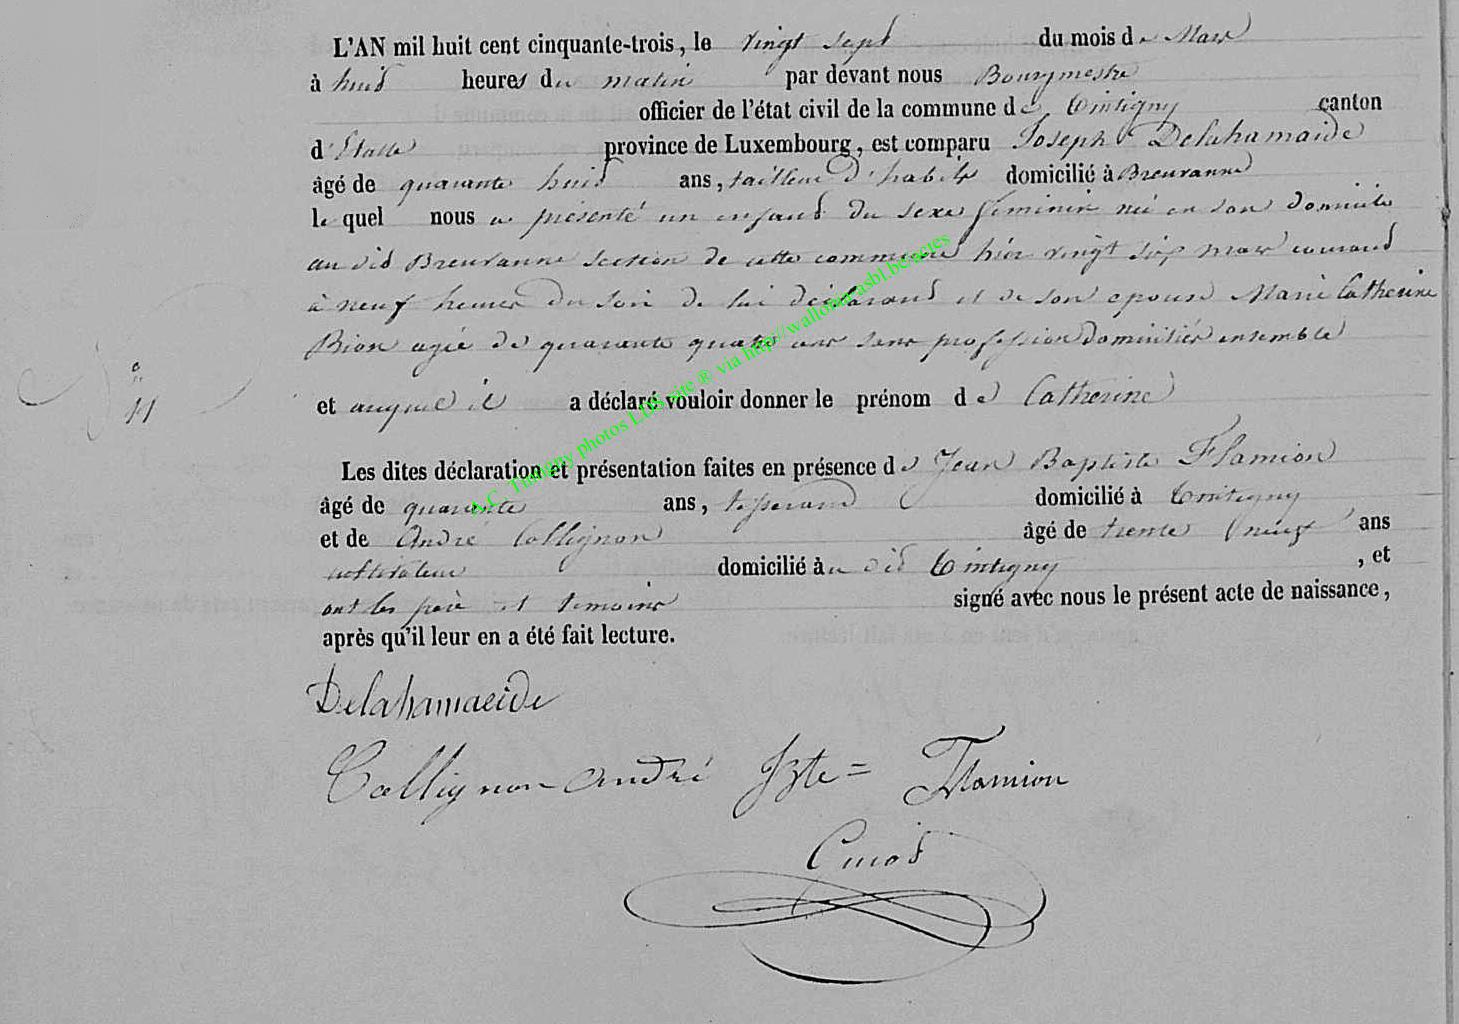 L'AN mil huit cent cinquante-trois, le vingt sept du mois de Mars
à huit heures du matin par devant nous Bourgmestre
officier de l'état civil de la commune de Tintigny canton
d'Etalle province de Luxembourg, est comparu Joseph Delahamaide
âgé de quarante huit ans, tailleur d'habits domicilié à Breuvanne
le quel nous a présenté un enfant du sexe féminin né en son domicile
au dit Breuvanne section de cette commune hier vingt six mars courant
à neuf heures du soir de lui déclarant et de son epouse Marie Catherine
Bion agée de quarante quatre ans sans profession domiciliés ensemble
N° 11
et auquel il a déclaré vouloir donner le prénom de Catherine
Les dites déclaration et présentation faites en présence de Jean Baptiste Flamion
âgé de quarante ans, tisserand domicilié à Tintigny
et de André Collignon âgé de trente neuf ans
cultivateur domicilié au dit Tintigny, et
ont les père et témoins signé avec nous le présent acte de naissance,
après qu'il leur en a été fait lecture.
Delahamaeide
Collignon André JBte = Flamion
A.C. Tintigny photos LDS site ® via http//wallonia.asbl.be/actes